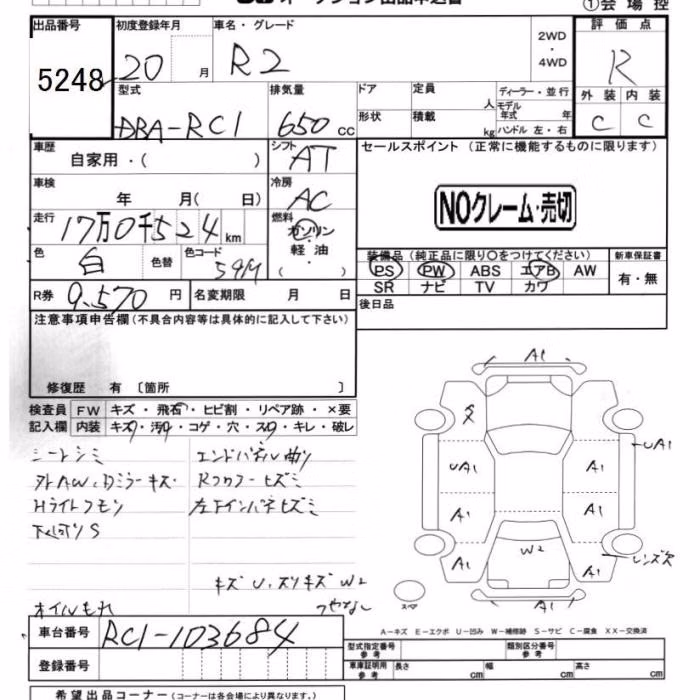 ①会場控
出品番号 初度登録年月 車名・グレード 評価点
5248 20 月 R2 2WD・4WD R
型式 排気量 ドア 定員 人 ディーラー・並行 外装 内装
DBA-RC1 650 cc 形状 積載 kg モデル年式 年 ハンドル 左・右 C C
車歴 シフト セールスポイント (正常に機能するものに限ります)
自家用・( ) AT
車検 冷房
年 月( 日) AC NOクレーム・売切
走行 17万0千524 km 燃料 ガソリン・軽油 ( )
色 白 色替 色コード 装備品(純正品に限り○をつけてください) 新車保証書
PS PW ABS エアB AW 有・無
SR ナビ TV カワ
R券 9,570 円 名変期限 月 日 後日品
注意事項申告欄(不具合内容等は具体的に記入して下さい)
修復歴 有 〔箇所 〕
検査員 FW キズ・飛石・ヒビ割・リペア跡・×要
記入欄 内装 キズ・汚・コゲ・穴・スレ・キレ・破レ
シートシミ エンドパネル曲リ
外AW,Dミラーキズ・ Rフロアーヒズミ
Hライトクモリ 左下インパネヒズミ
下廻リS
キズU,スリキズW2
オイルもれ つやなし
A1
A1 UA1
UA1 A1
A1 A1
A1 W2 A1 レンズ欠
A1
スペア
A-キズ E-エクボ U-凹み W-補修跡 S-サビ C-腐食 XX-交換済
車台番号 RC1-103684
登録番号
型式指定番号 参考 類別区分番号 参考
車庫証明用 参考 長さ cm 幅 cm 高さ cm
希望出品コーナー(コーナーは各会場により異なります。)